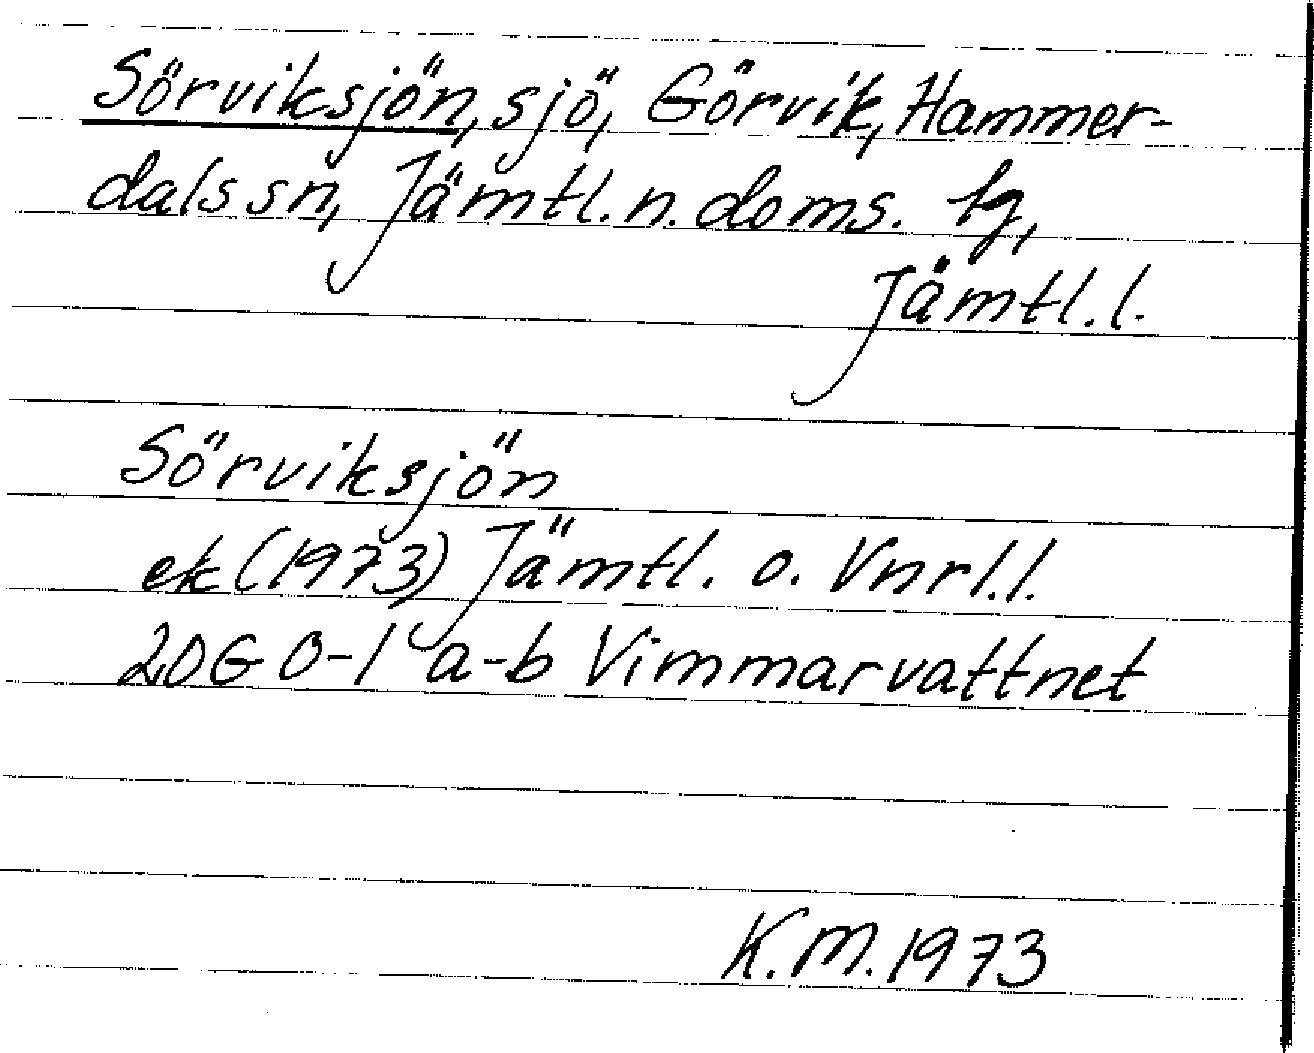 Sörviksjön, sjö, Görvik, Hammer-
dals sn, Jämtl. n. doms. tg,
Jämtl. l.
Sörviksjön
ek (1973) Jämtl. o. Vnrl. l.
20G 0-1 a-b Vimmarvattnet
K.M. 1973